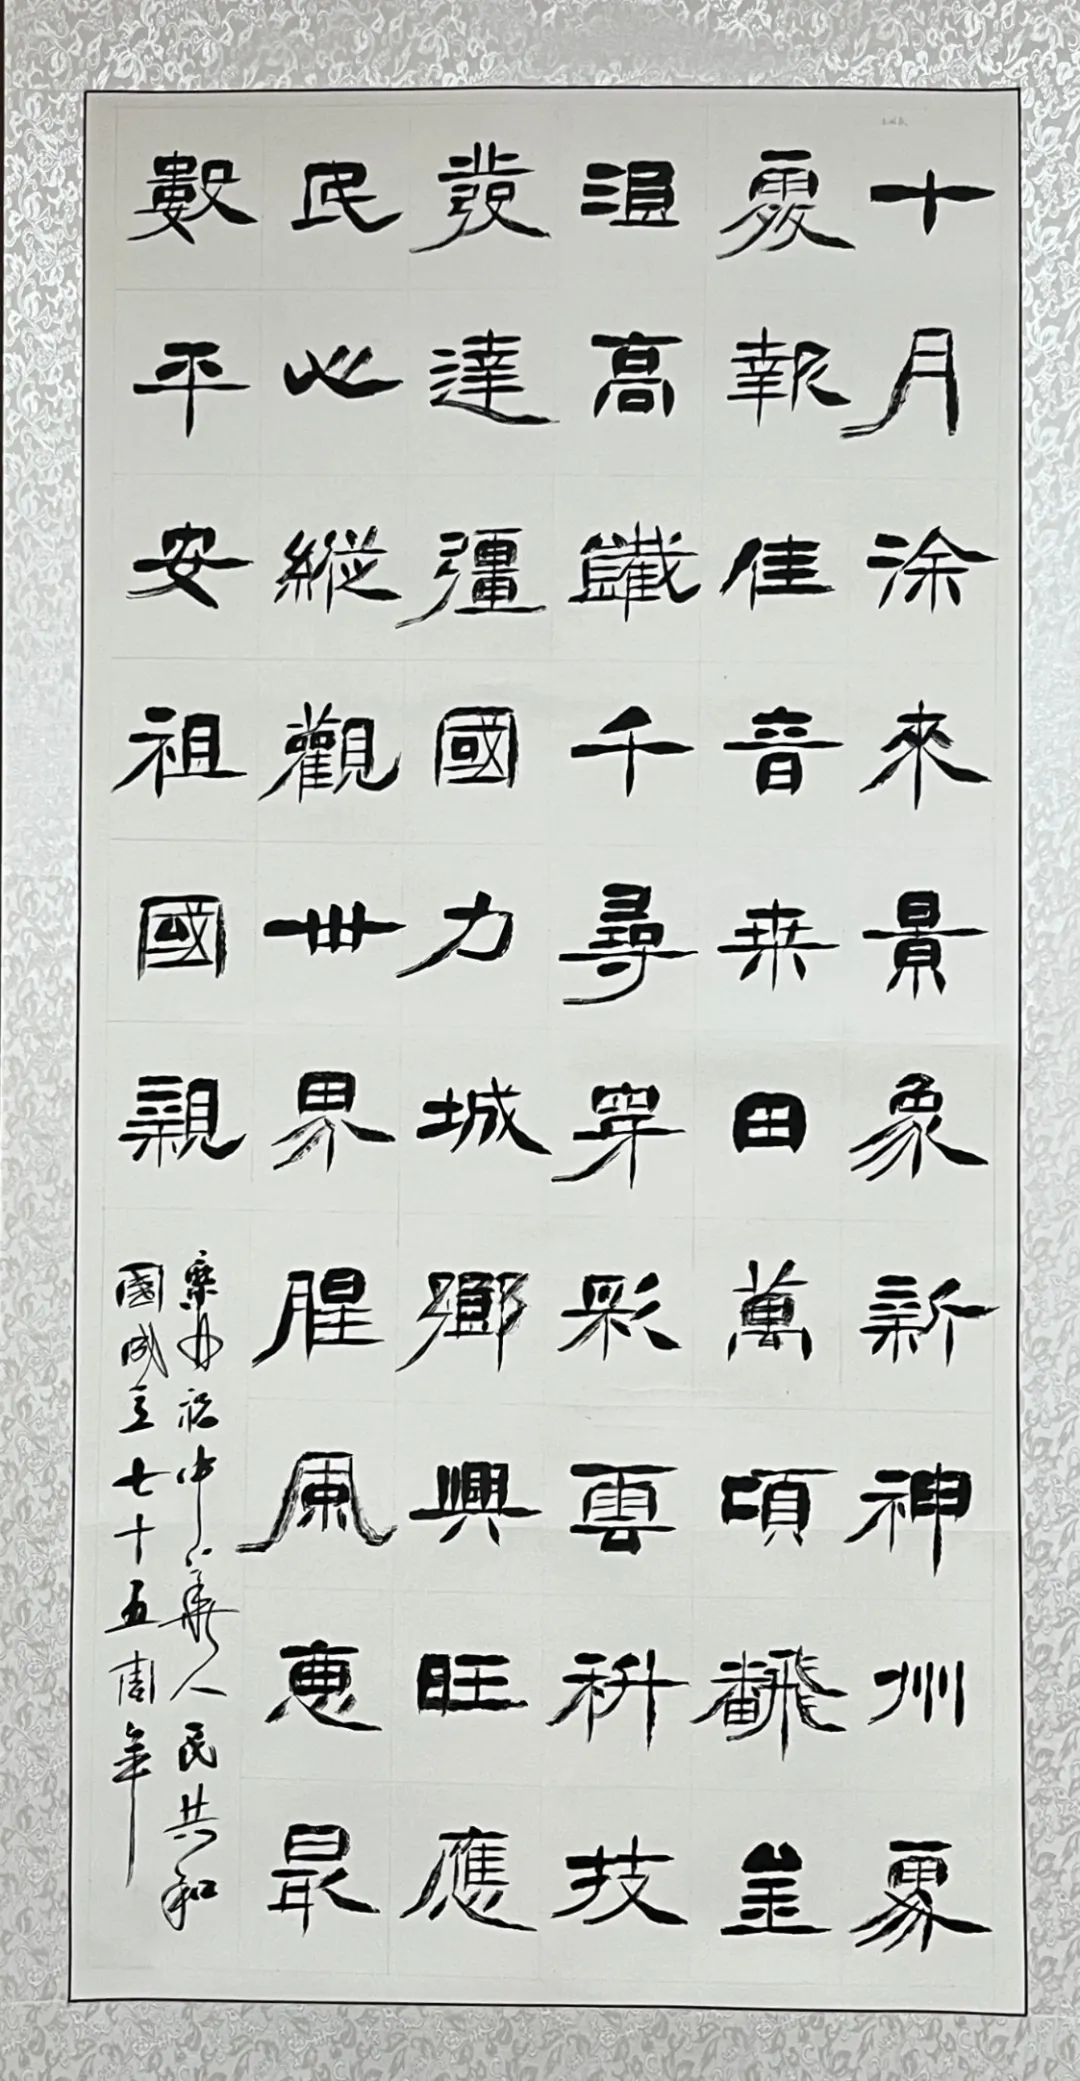 十月涂來景象新神州處
處報佳音桒田萬頃飜金
浪高鐵千尋穿彩雲科技
發達彊國力城鄉興旺應
民心縱觀世界腥風惡最
數平安祖國親
祝中華人民共和
國成立七十五周年